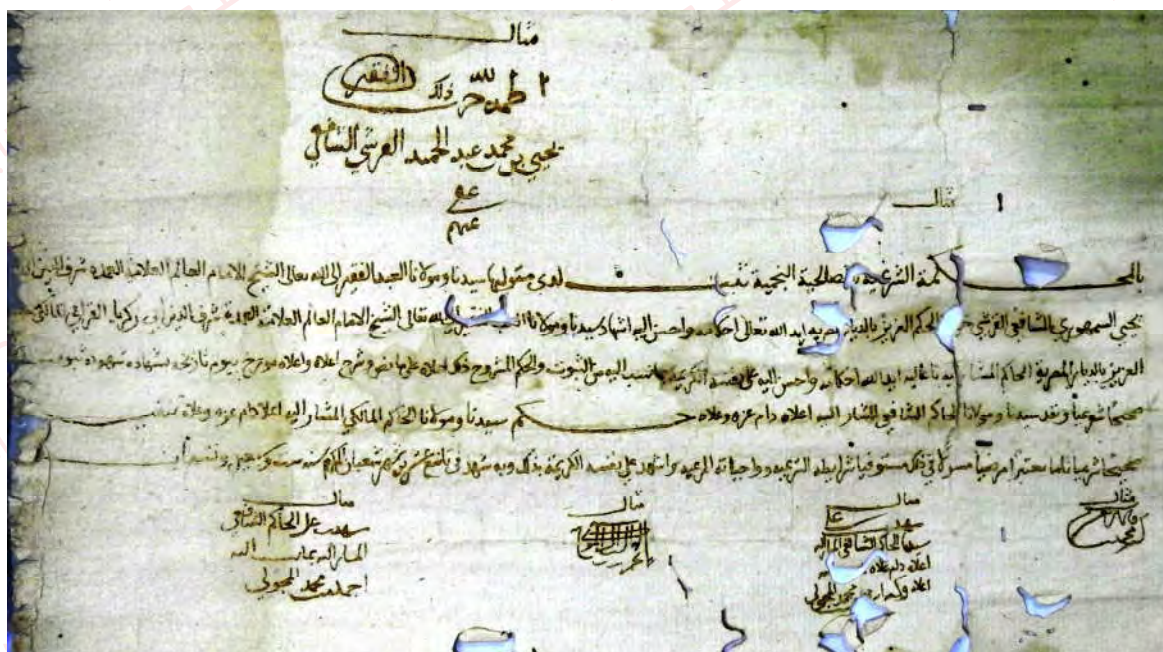 مثال
الحمد لله جرى ذلك الفقير
يحيى بن محمد عبد الحميد القرشي الشافعي
عفى
عنهم
مثال
بالمحكمة الشرعية الصالحية النجمية لدى متوليها سيدنا ومولانا العبد الفقير إلى الله تعالى الشيخ الامام العالم العلامة العمدة شرف الدين
يحيى السمهوري الشافعي القرشي الحكم العزيز بالديار ايد الله تعالى احكامه واحسن اليه اشهاد سيدنا ومولانا العبد الفقير الى الله تعالى الشيخ الامام العالم العلامة العمدة شرف الدين ابي زكريا القرافي المالكي
العزيز بالديار المصرية الحاكم المشار اليه ايد الله احكامه واحسن اليه على نفسه الكريمة بما نسب اليه من الثبوت والحكم المشروح ذلك اعلاه على ما نص وشرح اعلاه واعلاه مورخ بيوم تاريخه بشهادة شهوده
صحيحا شرعيا ونفذ سيدنا ومولانا الحاكم الشافعي المشار اليه اعلاه دام عزه وعلاه حكم سيدنا ومولانا الحاكم المالكي المشار اليه اعلاه دام عزه وعلاه
صحيحا شرعيا تاما معتبرا مرضيا في ذلك مستوفيا شرايطه الشرعية وواجباته المرعية واشهد على نفسه الكريمة بذلك وبه شهد في تاسع عشرين شهر شعبان المكرم سنة ست
مثال
مثال
شهدت على
سيدنا الحاكم الشافعي المشار اليه
اعلاه دام علاه
اعلاه محمد
مثال
مثال
شهدت على الحاكم الشافعي
المشار اليه بما نسب اليه
احمد بن محمد